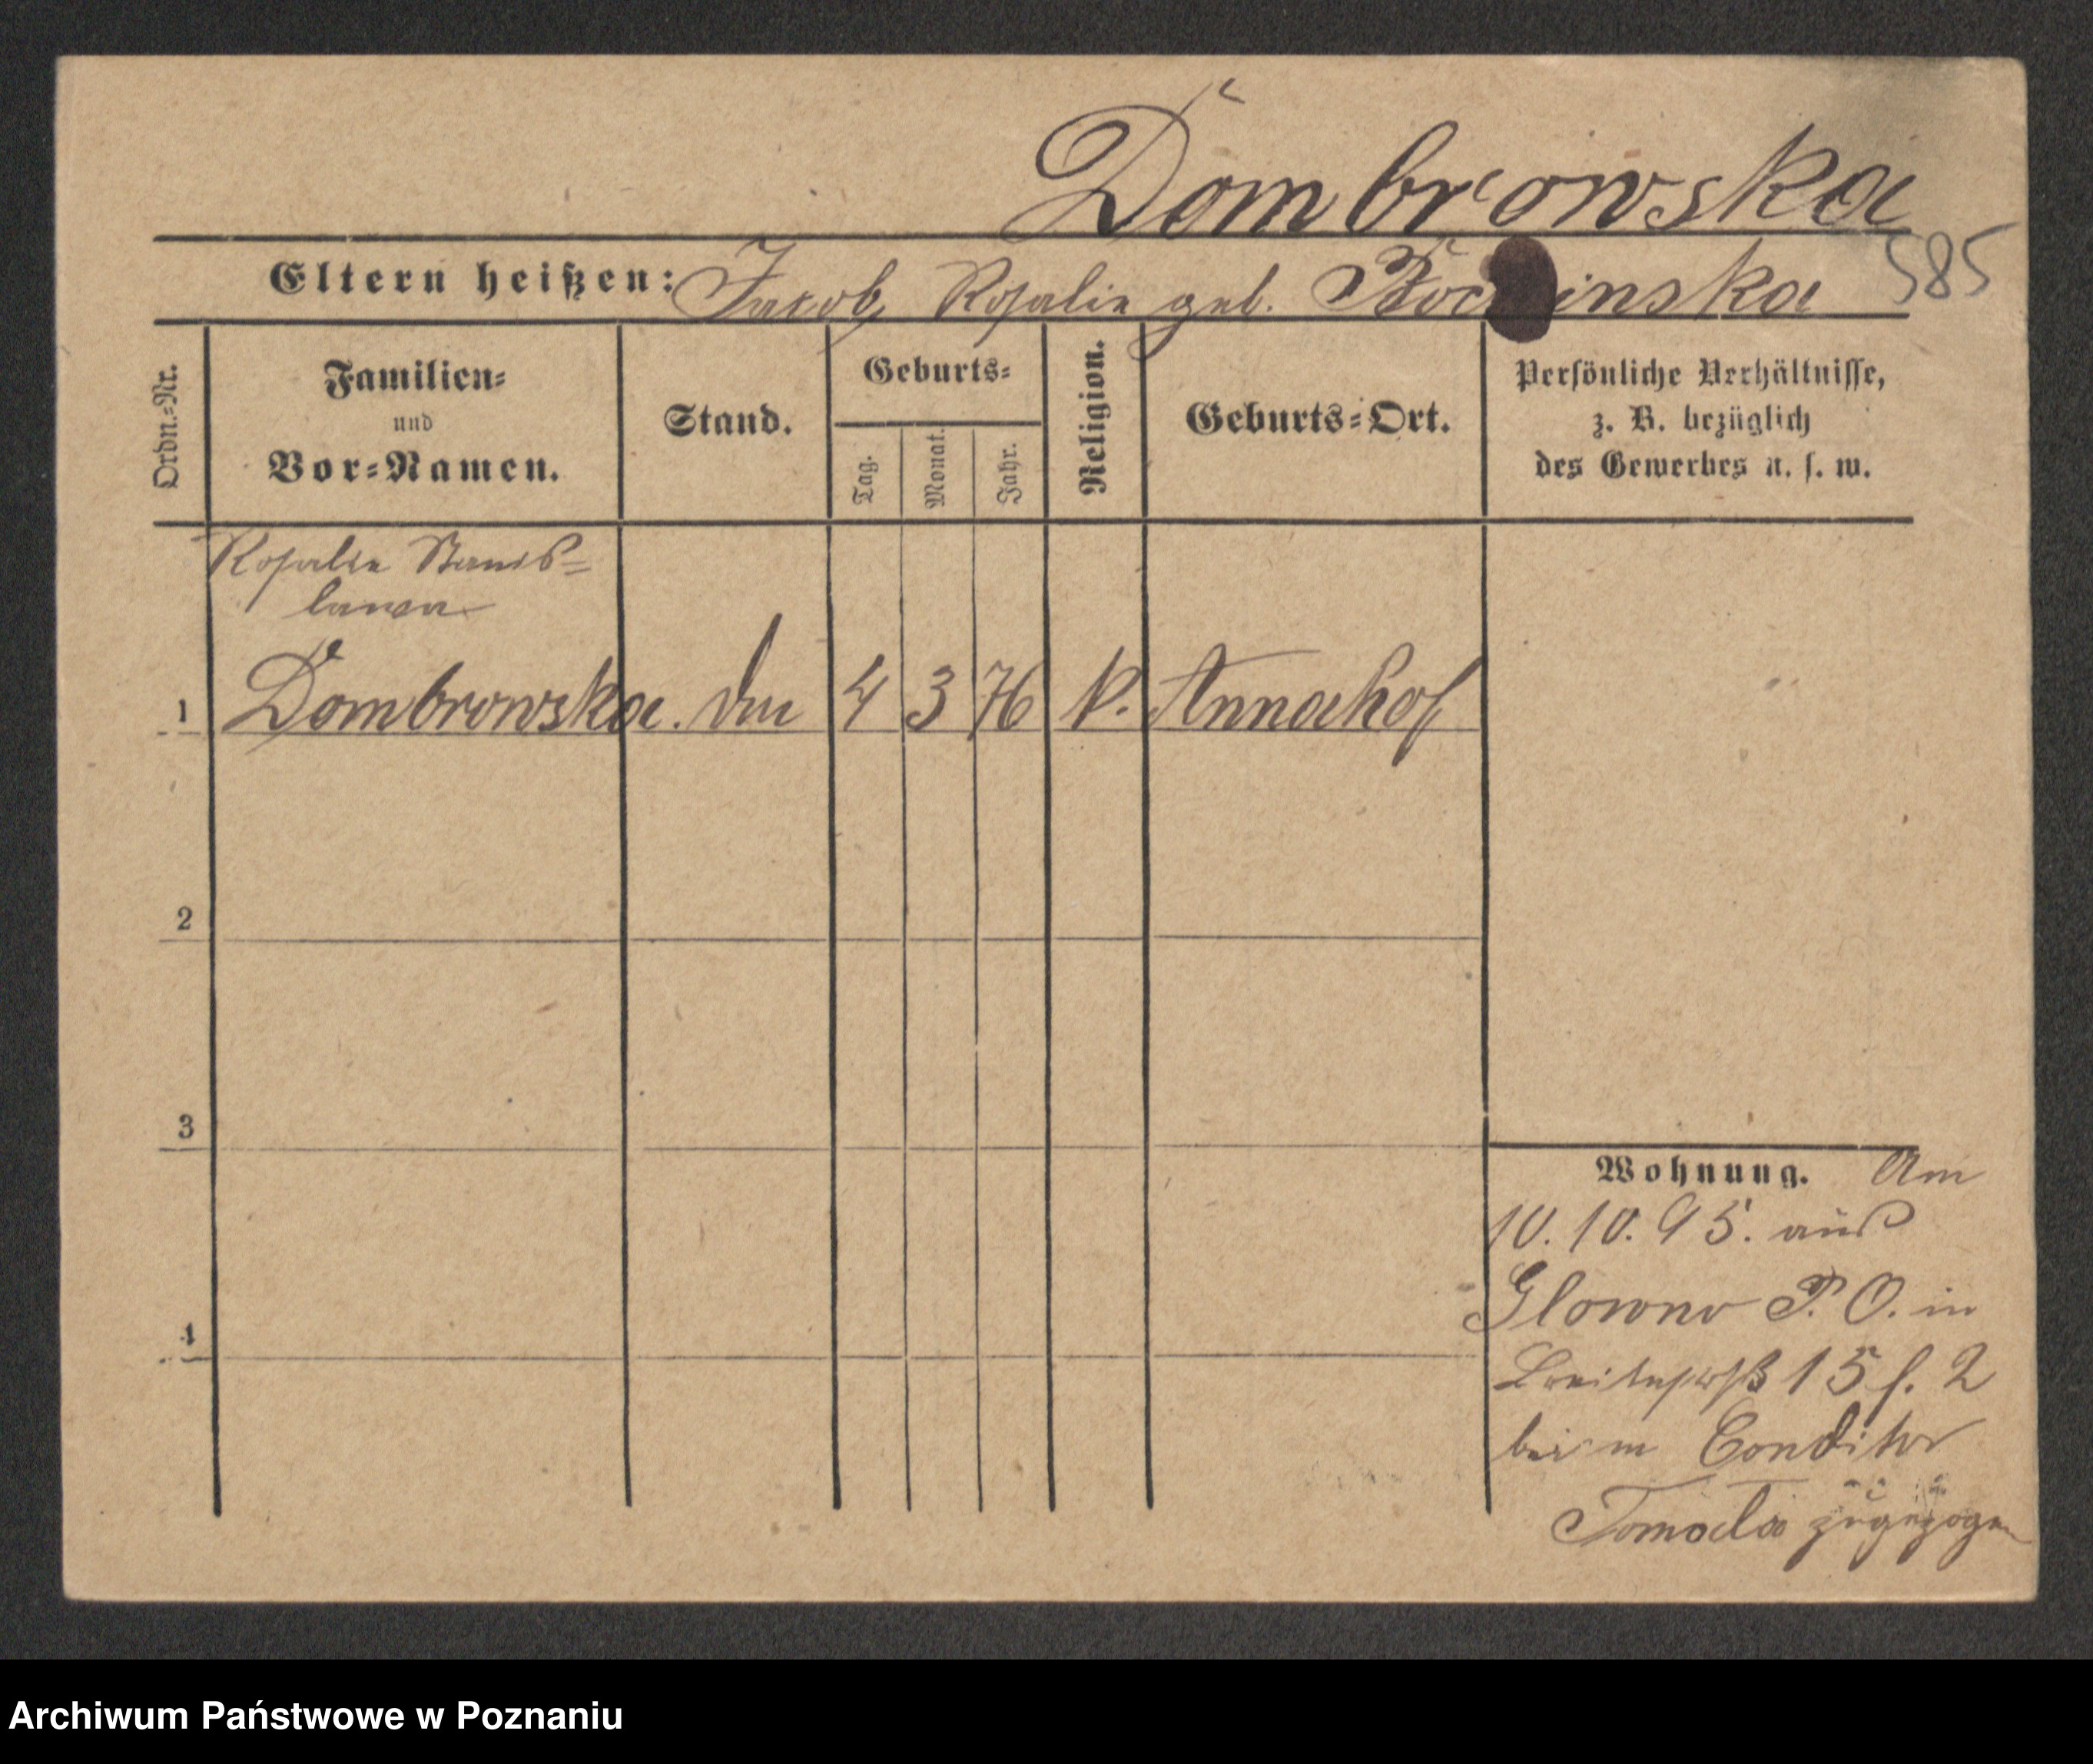 Dombrowska
Eltern heißen: Jakob, Rosalie geb. inska 585
Ordn.=Nr.
Familien=
und
Vor=Namen.
Stand.
Geburts=
Tag.
Monat.
Jahr.
Religion.
Geburts=Ort.
Persönliche Verhältnisse,
z. B. bezüglich
des Gewerbes u. s. w.
Rosalie Stanis=
lawa
1 Dombrowska. 4 3 76 k. Annahof
2
3
4
Wohnung. Am
10. 10. 95. aus
Glowno P. O. in
Breitestrß 15 f. 2
beim Conditor
zugezogen
Archiwum Państwowe w Poznaniu